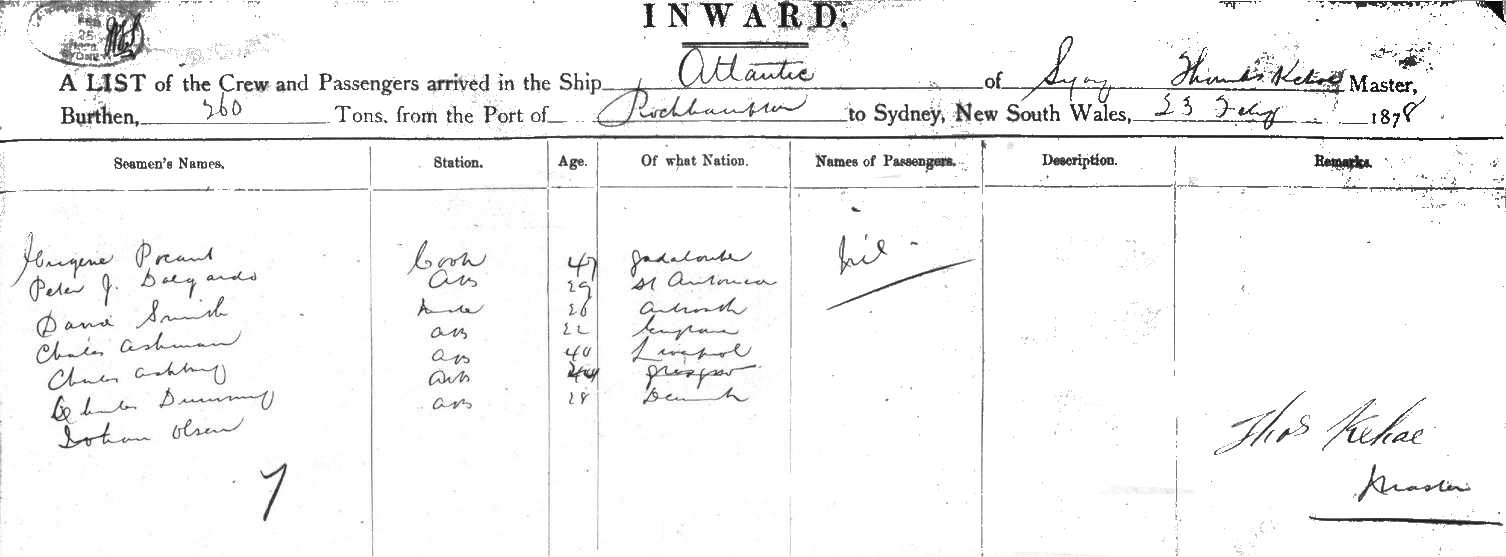 FEB
25
SYDNEY
INWARD.
A LIST of the Crew and Passengers arrived in the Ship Atlantic of Sydney Thomas Kehoe Master,
Burthen, 260 Tons. from the Port of Rockhampton to Sydney, New South Wales, 23 Feby 1878
Seamen's Names. Station. Age. Of what Nation. Names of Passengers. Description. Remarks.
Eugene Cook 47 nil
Peter J. Dalgardo AB 29 St
David Smith 26
Charles Ashman AB 22
Charles Ashbury AB 40 Liverpool
Charles AB 44 Glasgow
Johan Olsen AB 28 Denmark
7
Thos Kehoe
Master